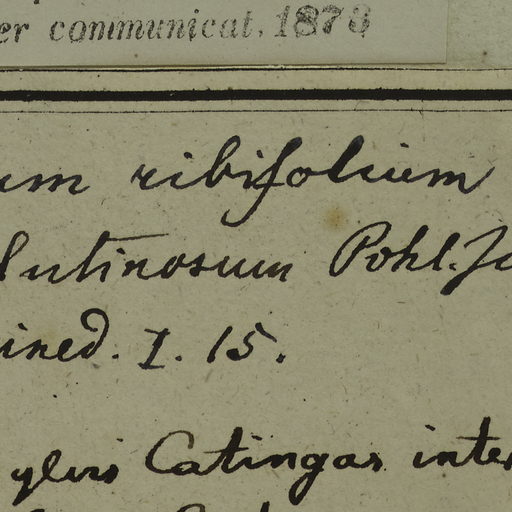 er communicat. 1873
um ribifolium
lutinosum Pohl. Ja
ined. I. 15.
ylvis Catingas inter